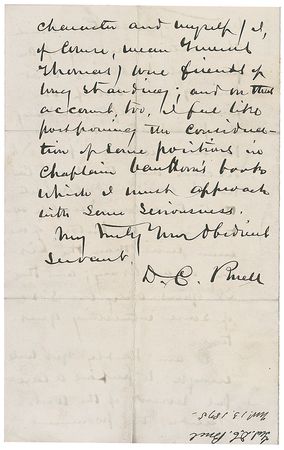 character and myself (I,
of course, mean General
Thomas) were friends of
long standing; and on that
account, too, I feel like
postponing the considera-
tion of some positions in
Chaplain Van Horne's book
which I must approach
with some seriousness.
Very Truly Your Obedient
Servant
D. C. Buell
Genl. D. C. Buell
Nov. 13 1875-